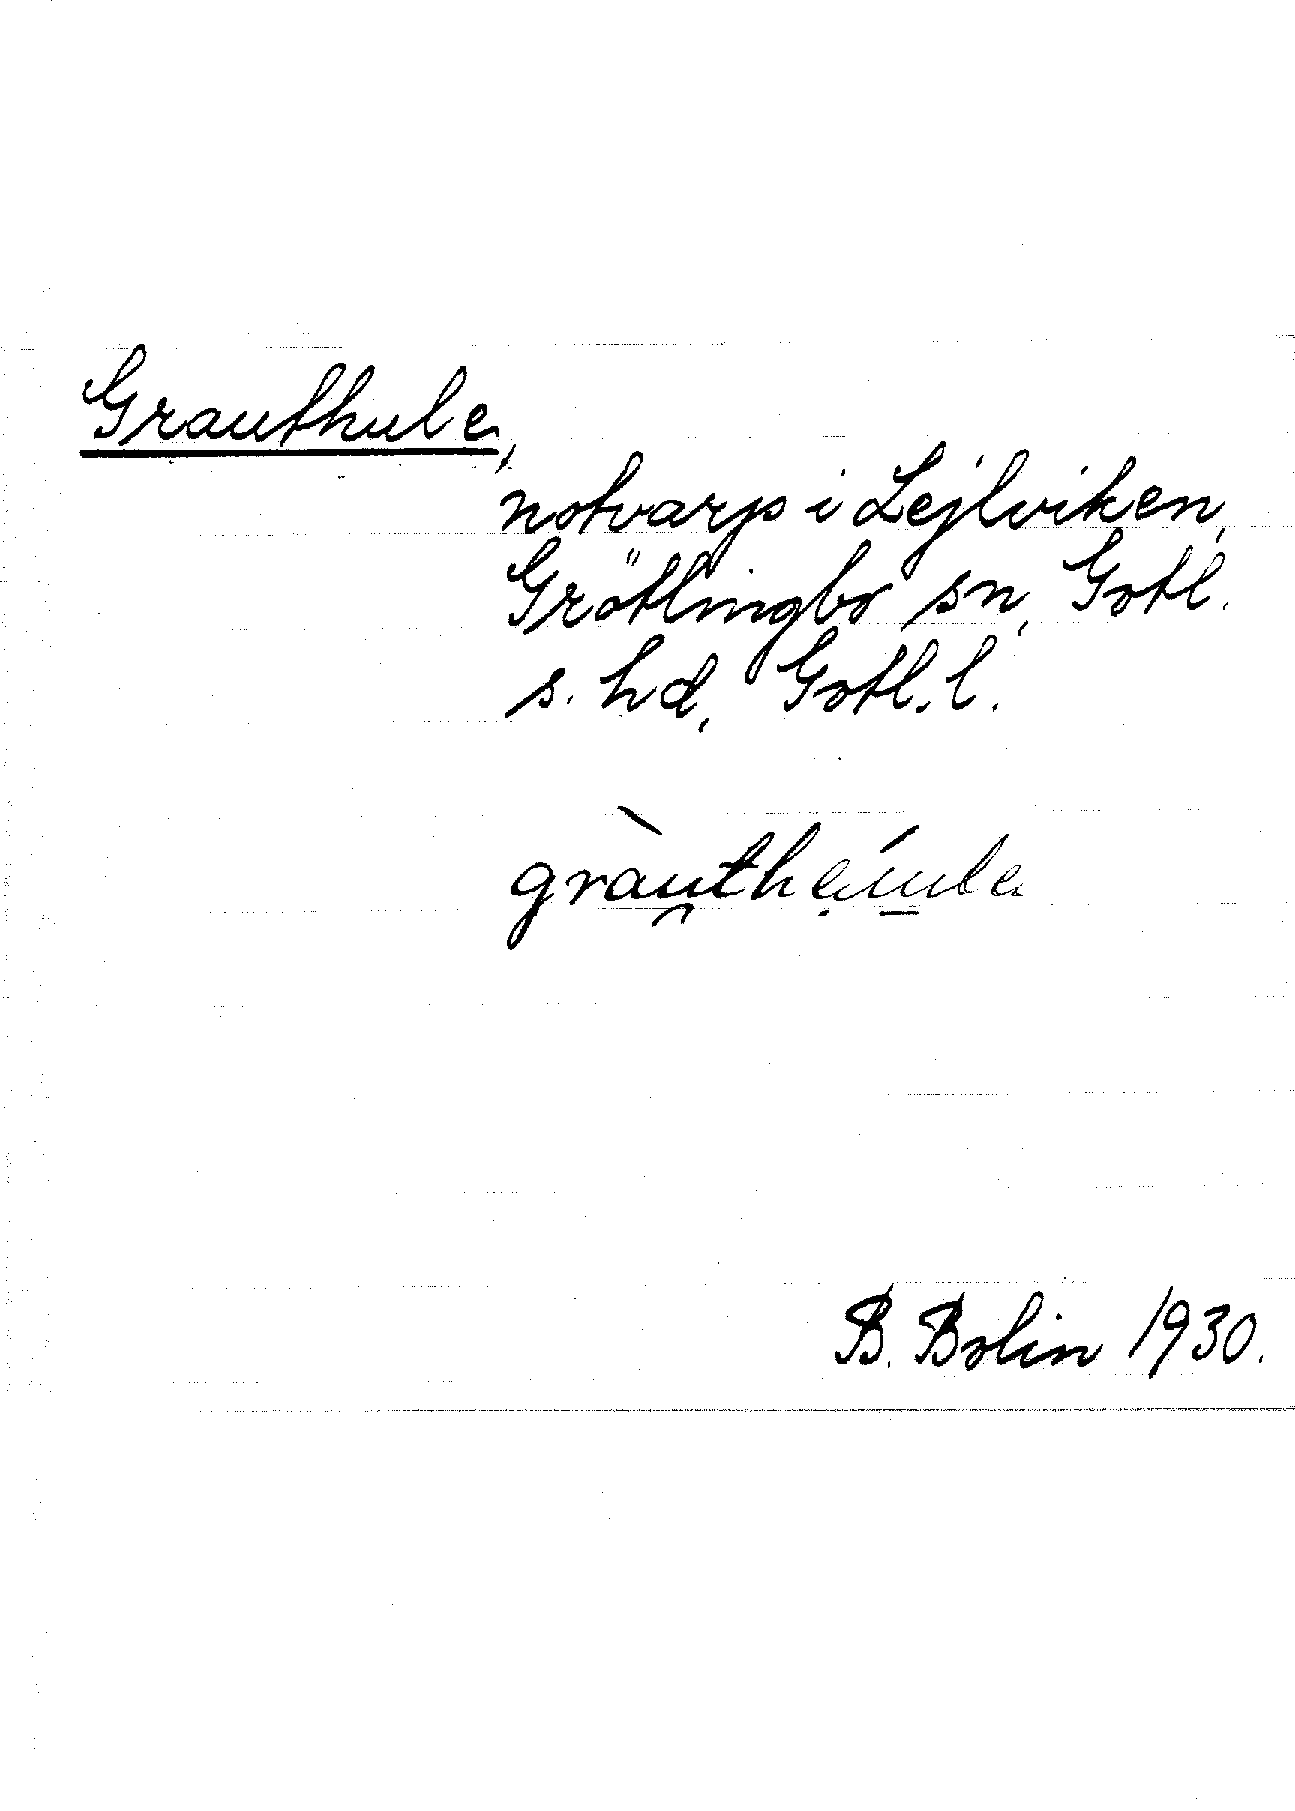 Grauthule,
notvarp i Lejlviken,
Grötlingbo sn, Gotl.
s. hd, Gotl. l.
gràu̯thẹúu̠le
B. Bolin 1930.